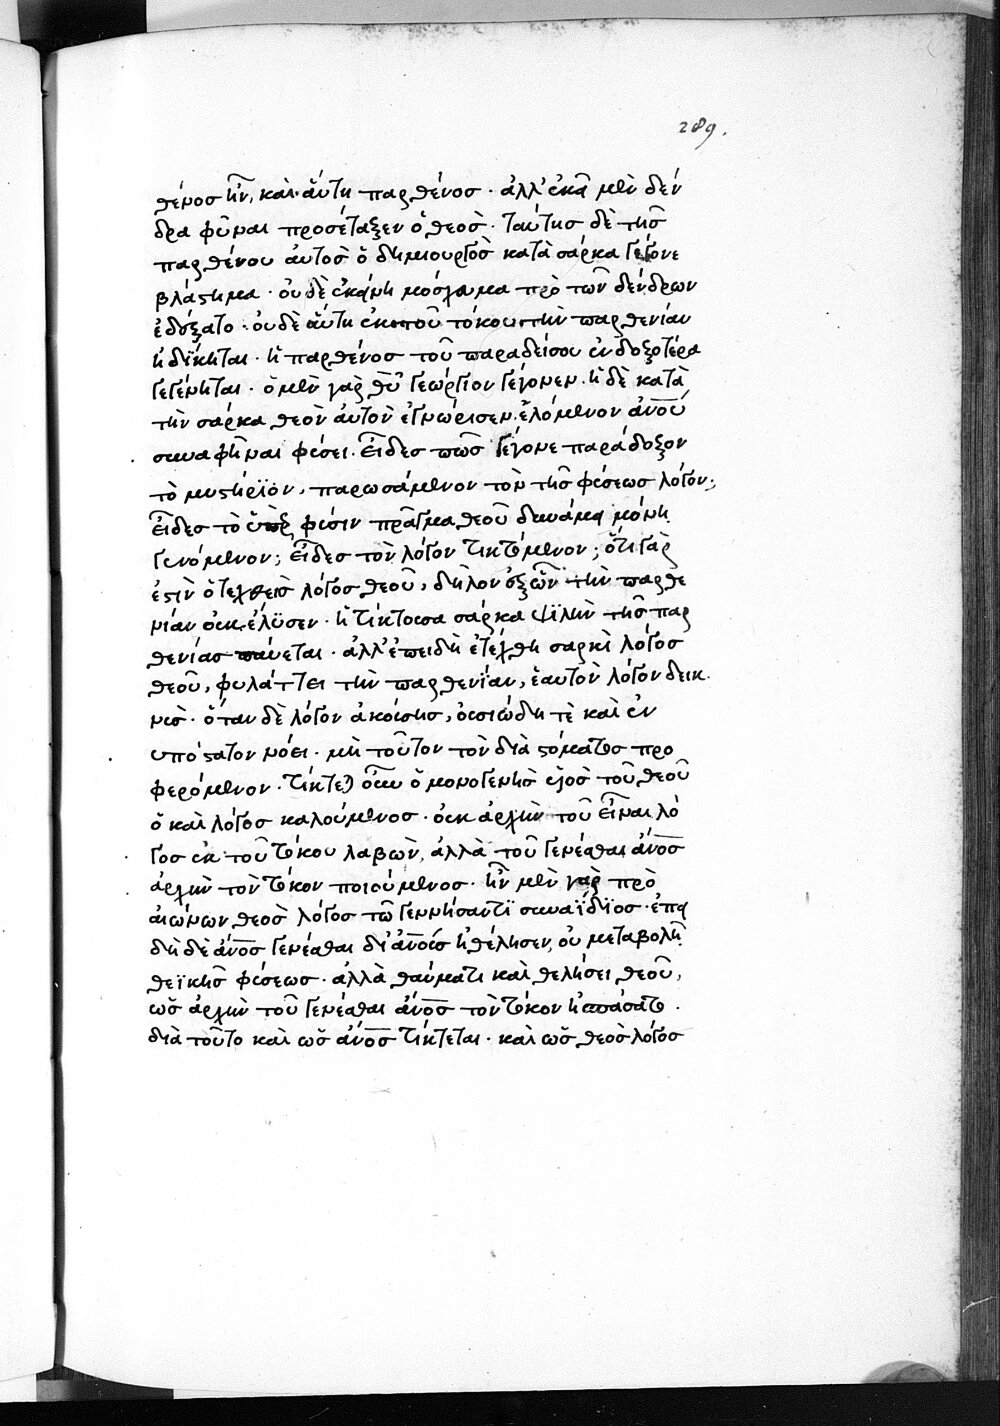 289.
θένος ἦν, καὶ αὕτη παρθένος · ἀλλ' ἐκεῖ μὲν δέν
δρα φῦναι προσέταξεν ὁ θεὸς · ταύτης δὲ τῆς
παρθένου αὐτὸς ὁ δημιουργὸς κατὰ σάρκα γέγονε
βλάστημα · οὐδὲ ἐκείνη μόσχευμα πρὸ τῶν δένδρων
ἐδέξατο · οὐδὲ αὕτη ἐκ τοῦ τόκου τὴν παρθενίαν
ἠδίκηται · ἡ παρθένος τοῦ παραδείσου ἐνδοξοτέρα
γεγένηται · ὁ μὲν γὰρ θῦ γεώργιον γέγονεν · ἡ δὲ κατὰ
τὴν σάρκα θεὸν αὐτὸν ἐγνώρισεν ἑλόμενον ἀνου
συναφθῆναι φύσει · εἶδες πῶς γέγονε παράδοξον
τὸ μυστήριον, παρωσάμενον τὸν τῆς φύσεως λόγον;
εἶδες τὸ ὑπὲρ φύσιν πρᾶγμα θεοῦ δυνάμει μόνη
γενόμενον; εἶδες τὸν λόγον τικτόμενον; ὅτι γὰρ
ἐστὶν ὁ τεχθεὶς λόγος θεοῦ, δῆλον ἐξ ὧν τὴν παρθε
νίαν οὐκ ἔλυσεν · ἡ τίκτουσα σάρκα ψιλὴν τῆς παρ
θενίας παύεται · ἀλλ' ἐπειδὴ ἐτέχθη σαρκὶ λόγος
θεοῦ, φυλάττει τὴν παρθενίαν, ἑαυτὸν λόγον δεικ
νὺς · ὅταν δὲ λόγον ἀκούσης, οὐσιώδη τὲ καὶ ἐν
υπόστατον νόει · μὴ τοῦτον τὸν διὰ στόματος προ
φερόμενον · τίκτεται οὖν ὁ μονογενὴς υἱὸς τοῦ θεοῦ
ὁ καὶ λόγος καλούμενος · οὐκ ἀρχὴν τοῦ εἶναι λό
γος ἐκ τοῦ τόκου λαβὼν, ἀλλὰ τοῦ γενέσθαι ἀνος
ἀρχὴν τὸν τόκον ποιούμενος · ἦν μὲν γὰρ πρὸ
αἰώνων θεὸς λόγος τῶ γεννήσαντι συναΐδιος · ἐπει
δὴ δὲ ἀνος γενέσθαι δι' ἀνους ἠθέλησεν, οὐ μεταβολῆ
θεϊκῆς φύσεως · ἀλλὰ θαύματι καὶ θελήσει θεοῦ,
ὡς ἀρχὴν τοῦ γενέσθαι ἀνος τὸν τόκον ἠσπάσατο ·
διὰ τοῦτο καὶ ὡς ἀνος τίκτεται · καὶ ὡς θεὸς λόγος